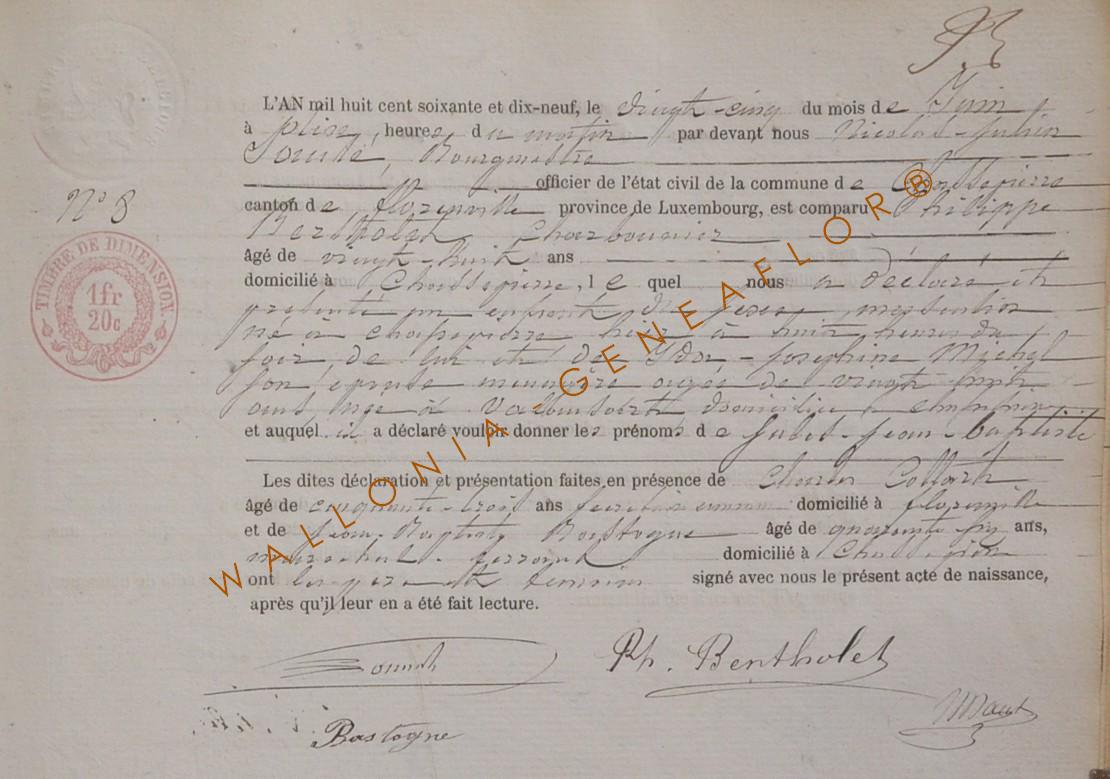 N° 8
TIMBRE DE DIMENSION.
1fr
20c
L'AN mil huit cent soixante et dix-neuf, le vingt-cinq du mois de Juin
à heures du matin par devant nous Nicolas-Julien
Bourgmestre
officier de l'état civil de la commune de Chassepierre
canton de Florenville province de Luxembourg, est comparu Philippe
Bertholet, Charbonnier
âgé de vingt-huit ans
domicilié à Chassepierre, lequel nous a déclaré et
présenté un enfant du sexe masculin
né à Chassepierre hier à huit heures du
soir de lui et de Ida-Josephine Michel
son épouse ménagère agée de vingt huit
ans née à domiciliée à
et auquel il a déclaré vouloir donner les prénoms de Jules-Jean-Baptiste
Les dites déclaration et présentation faites en présence de Charles Collard
âgé de cinquante-trois ans domicilié à Florenville
et de Jean-Baptiste Bastogne âgé de quarante six ans,
maréchal-ferrant domicilié à Chassepierre
ont les père et témoins signé avec nous le présent acte de naissance,
après qu'il leur en a été fait lecture.
Ph. Bentholet
Bastogne
WALLONIA-GENEAFLOR®